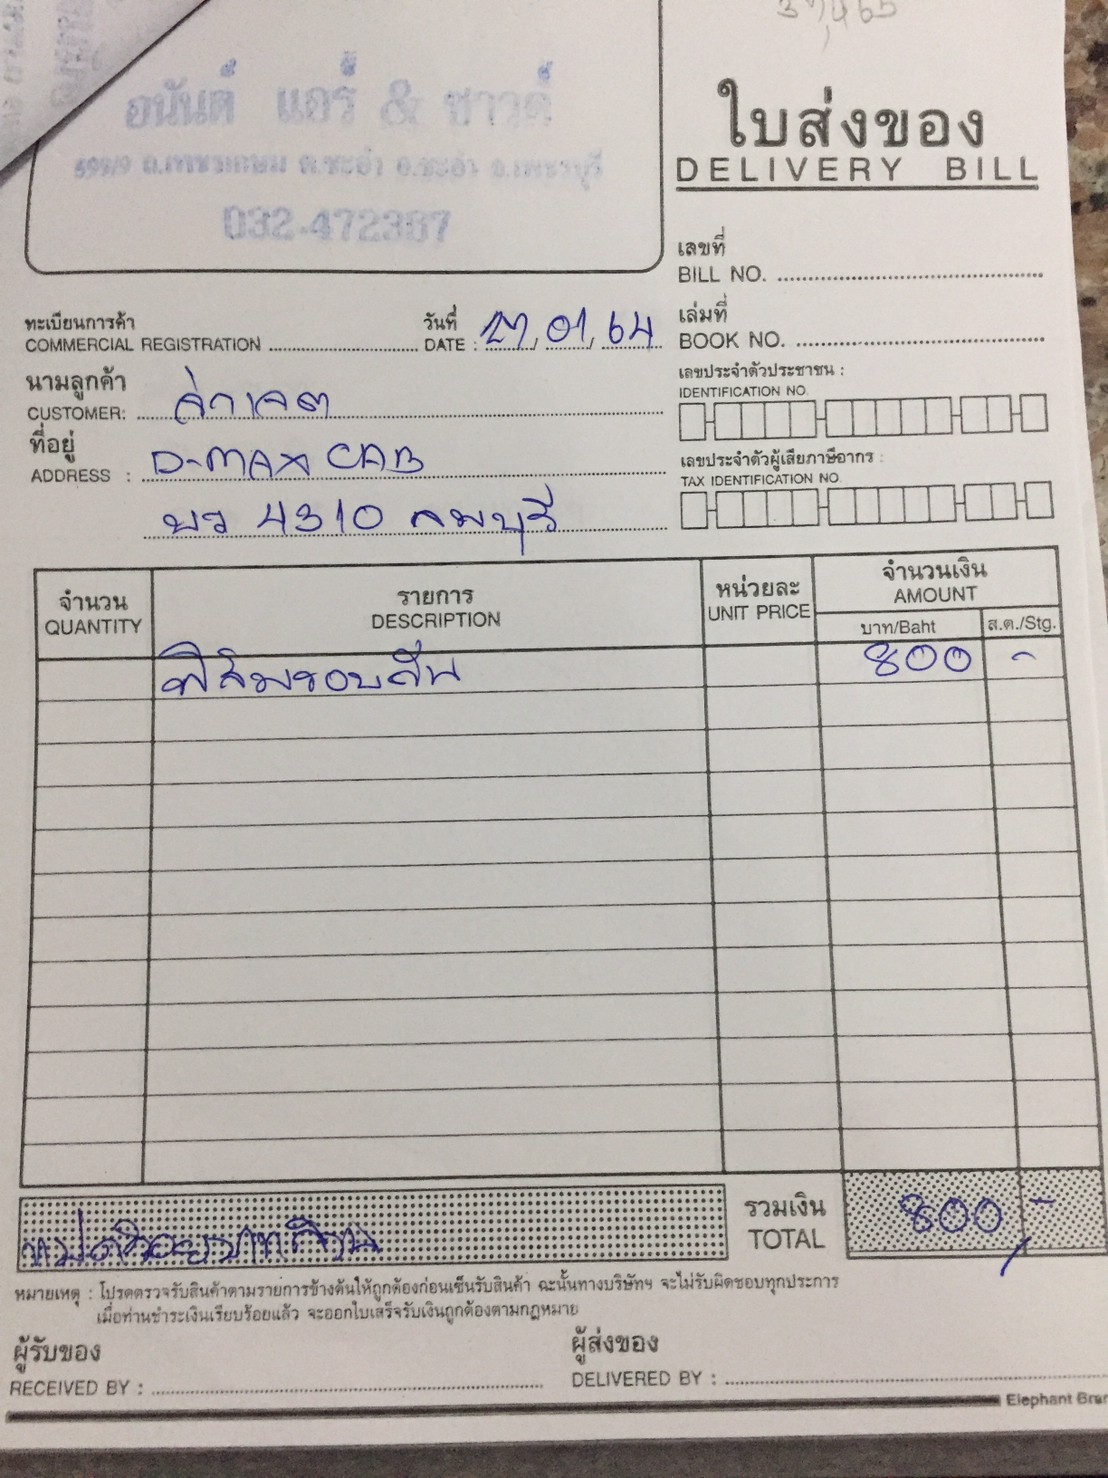 อนันต์ แอร์ & ซาวด์
ถ.เพชรเกษม ต.ชะอำ อ.ชะอำ จ.เพชรบุรี
032-472387
ใบส่งของ
DELIVERY BILL
เลขที่
BILL NO.
ทะเบียนการค้า
COMMERCIAL REGISTRATION
วันที่
DATE : 27,01,64
เล่มที่
BOOK NO.
นามลูกค้า
CUSTOMER:
เลขประจำตัวประชาชน :
IDENTIFICATION NO.
ที่อยู่
ADDRESS : D-MAX CAB
เลขประจำตัวผู้เสียภาษีอากร :
TAX IDENTIFICATION NO.
4310 ลพบุรี
จำนวน
QUANTITY
รายการ
DESCRIPTION
หน่วยละ
UNIT PRICE
จำนวนเงิน
AMOUNT
บาท/Baht ส.ต./Stg.
ฟิล์มรอบคัน 800 -
แปดร้อยบาทถ้วน
รวมเงิน
TOTAL
800 -
หมายเหตุ : โปรดตรวจรับสินค้าตามรายการข้างต้นให้ถูกต้องก่อนเซ็นรับสินค้า ฉะนั้นทางบริษัทฯ จะไม่รับผิดชอบทุกประการ
เมื่อท่านชำระเงินเรียบร้อยแล้ว จะออกใบเสร็จรับเงินถูกต้องตามกฎหมาย
ผู้รับของ
RECEIVED BY :
ผู้ส่งของ
DELIVERED BY :
Elephant Bran